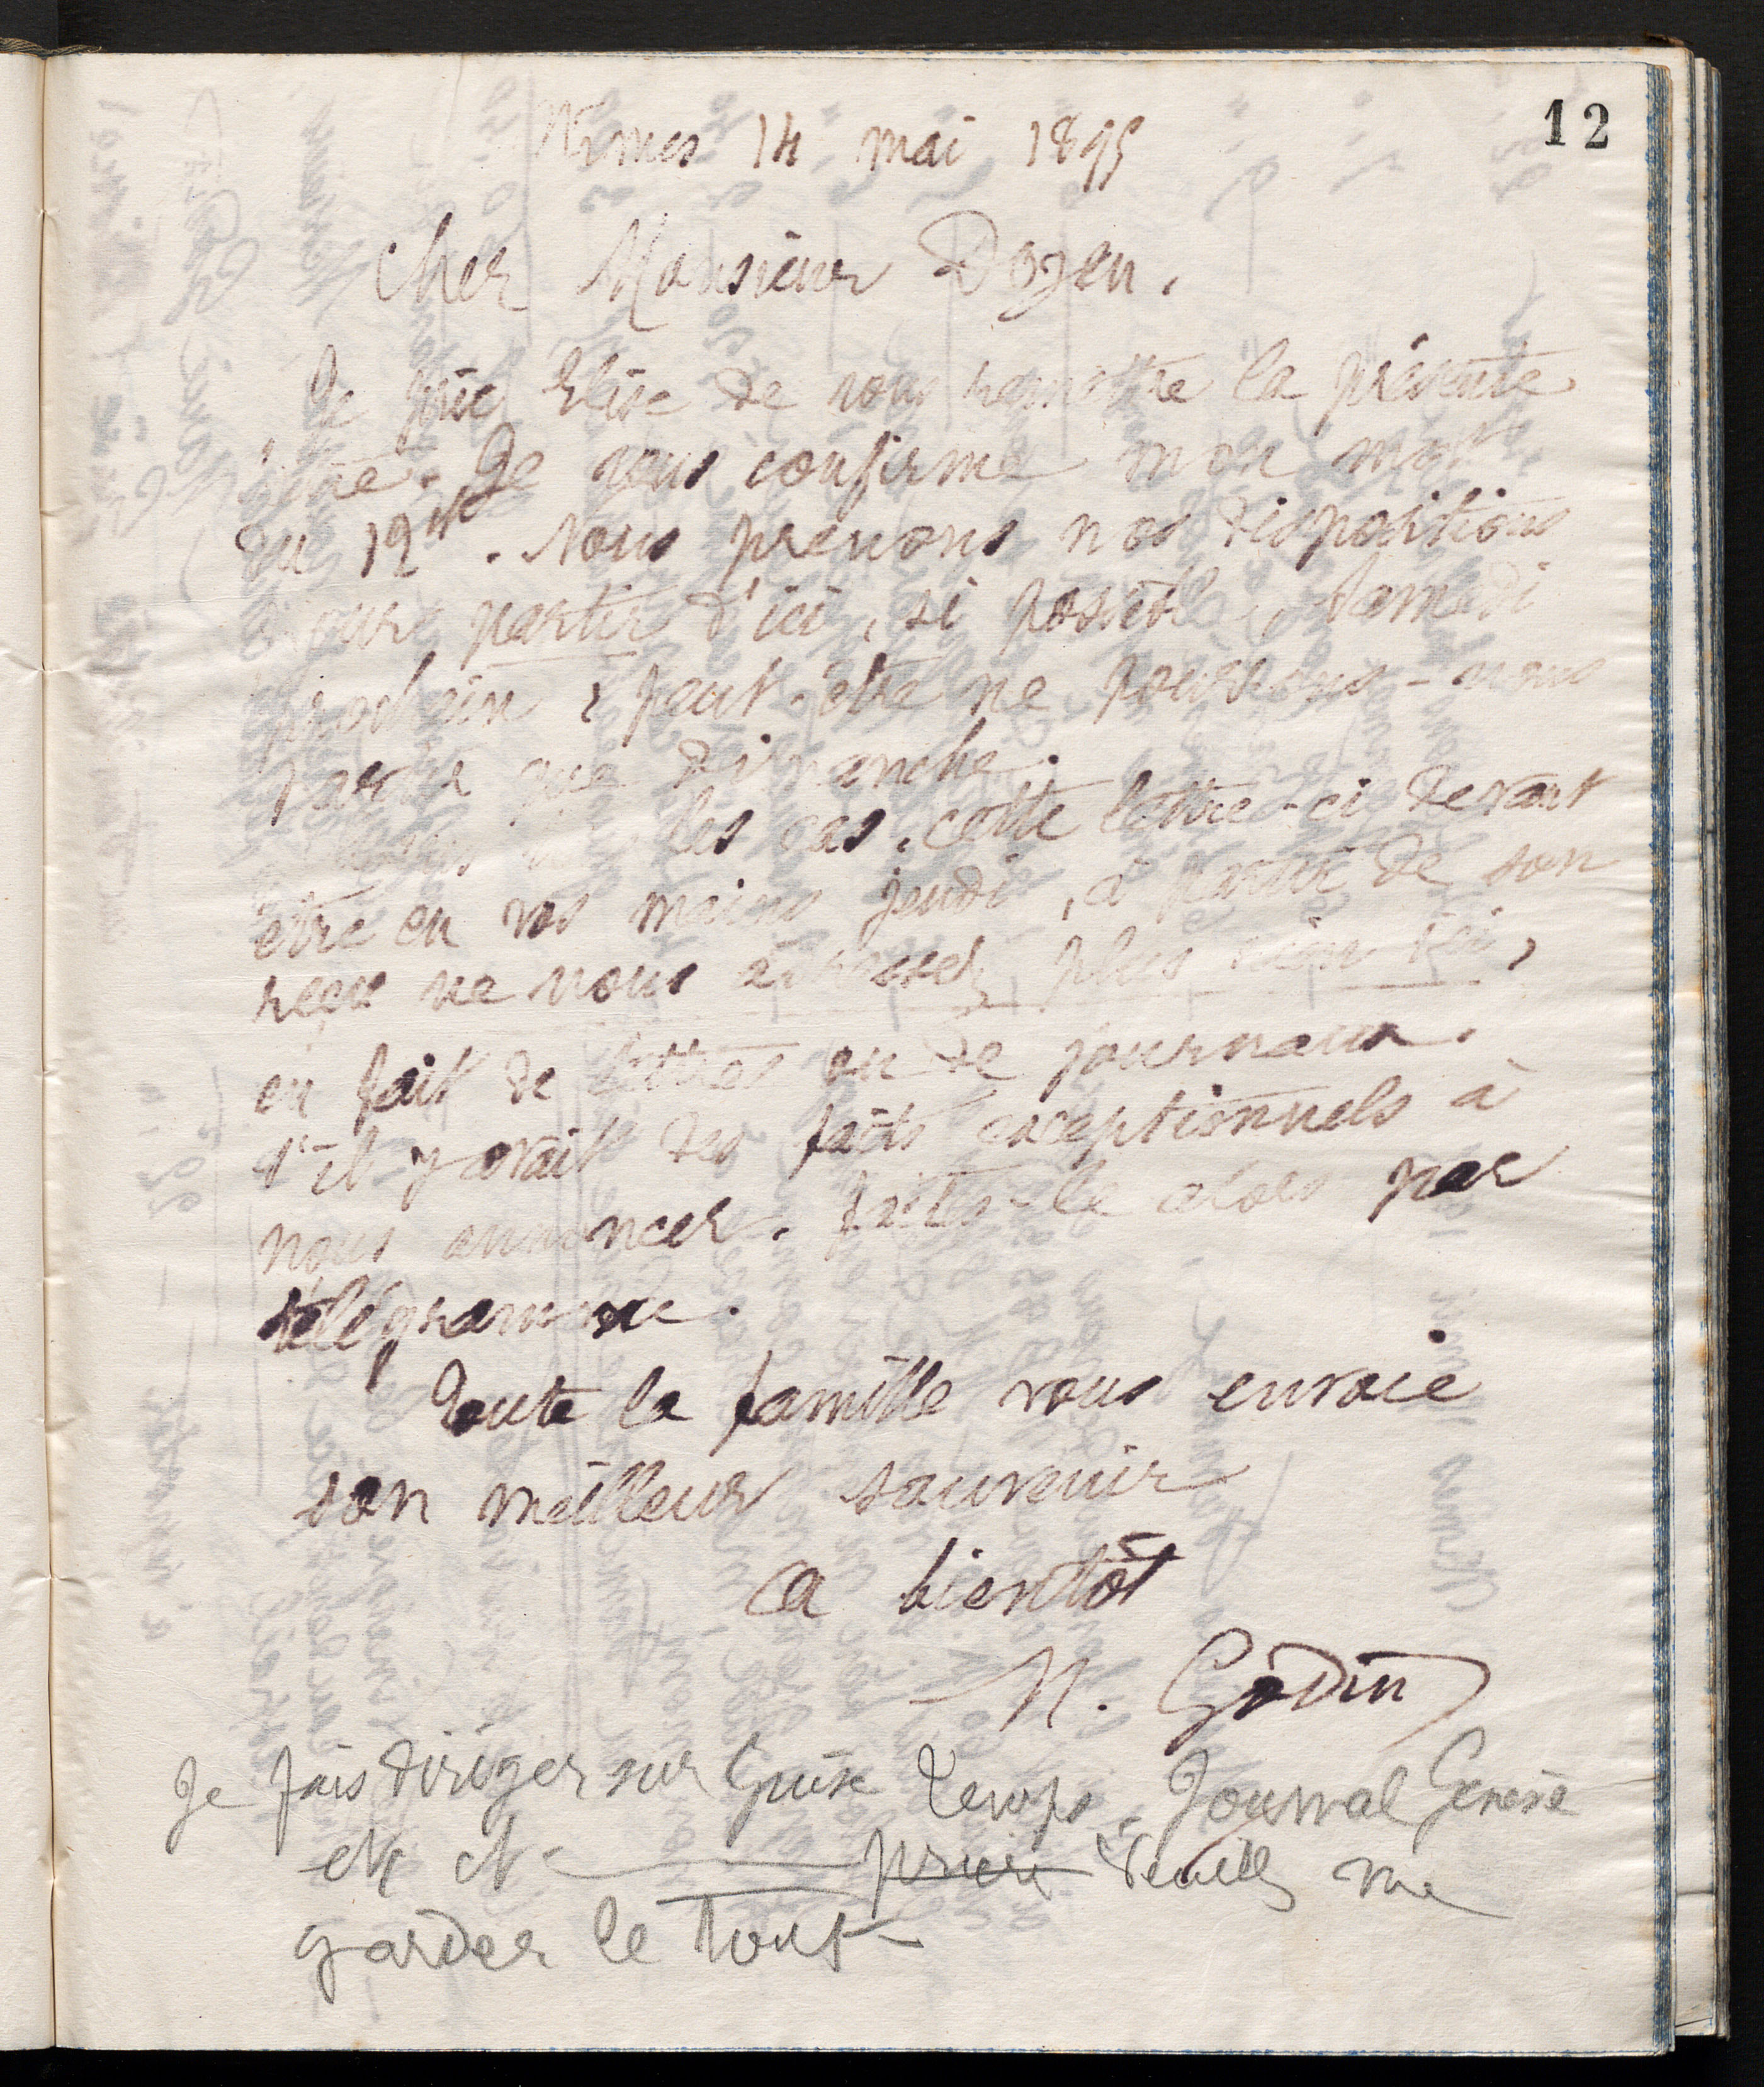 12
Nîmes 14 mai 1895
Cher Monsieur Doyen.
Je prie Elise de vous remettre la présente
Je vous confirme mon mot
du 12 ct. Nous prenons nos dispositions
pour partir d'ici, si possible, Samedi
prochain, peut-être ne pourrons-nous
partir que dimanche.
les cas, cette lettre-ci devant
être en vos mains jeudi, à partir de son
reçu ne nous adressez plus rien ici,
en fait de lettres ou de journaux.
S'il y avait des faits exceptionnels à
nous annoncer. faites-le alors par
télégramme.
Toute la famille vous envoie
son meilleur souvenir
A bientôt
M. Godin
Je fais diriger sur Guise Temps, Journal Genève
etc etc prière Veuillez me
garder le tout